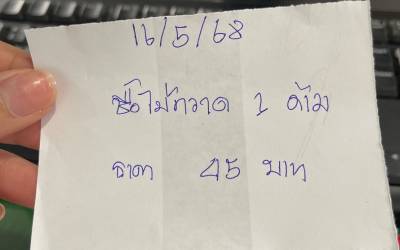 16/5/68
ซื้อไม้กวาด 1 ด้าม
ราคา 45 บาท